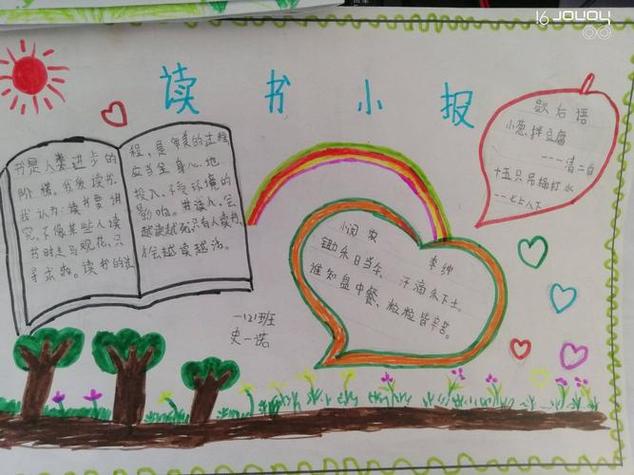 读书小报
书是人类进步的
阶梯,我爱读书。
我认为:读书要讲
究,不像某些人读
书时走马观花,只
寻求趣。读书的过
程,是享受的过程
应当全身心地
投入,不受环境的
影响。其读入,会
越读越死只有人读书,
才会越读越活。
歇后语
小葱拌豆腐
----清二白
十五只吊桶打水
---七上八下
悯农 李绅
锄禾日当午,汗滴禾下土。
谁知盘中餐,粒粒皆辛苦。
一121班
史一诺